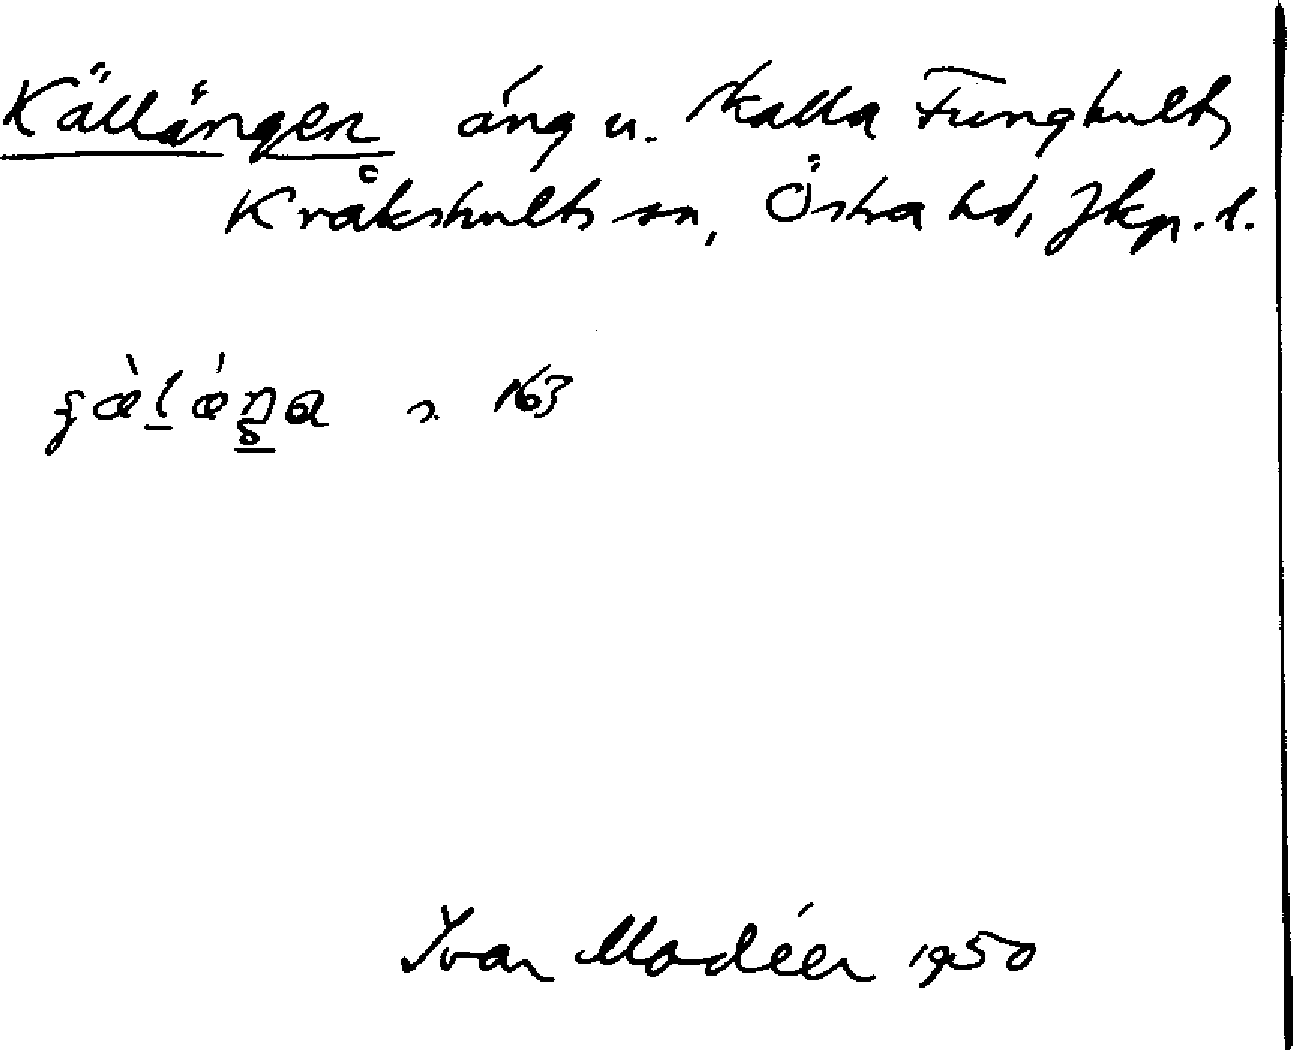 Källängen äng u. Skalla Funghult,
Kråkshults sn, Östra hd, Jkp. l.
163
Ivar Modéer 1950